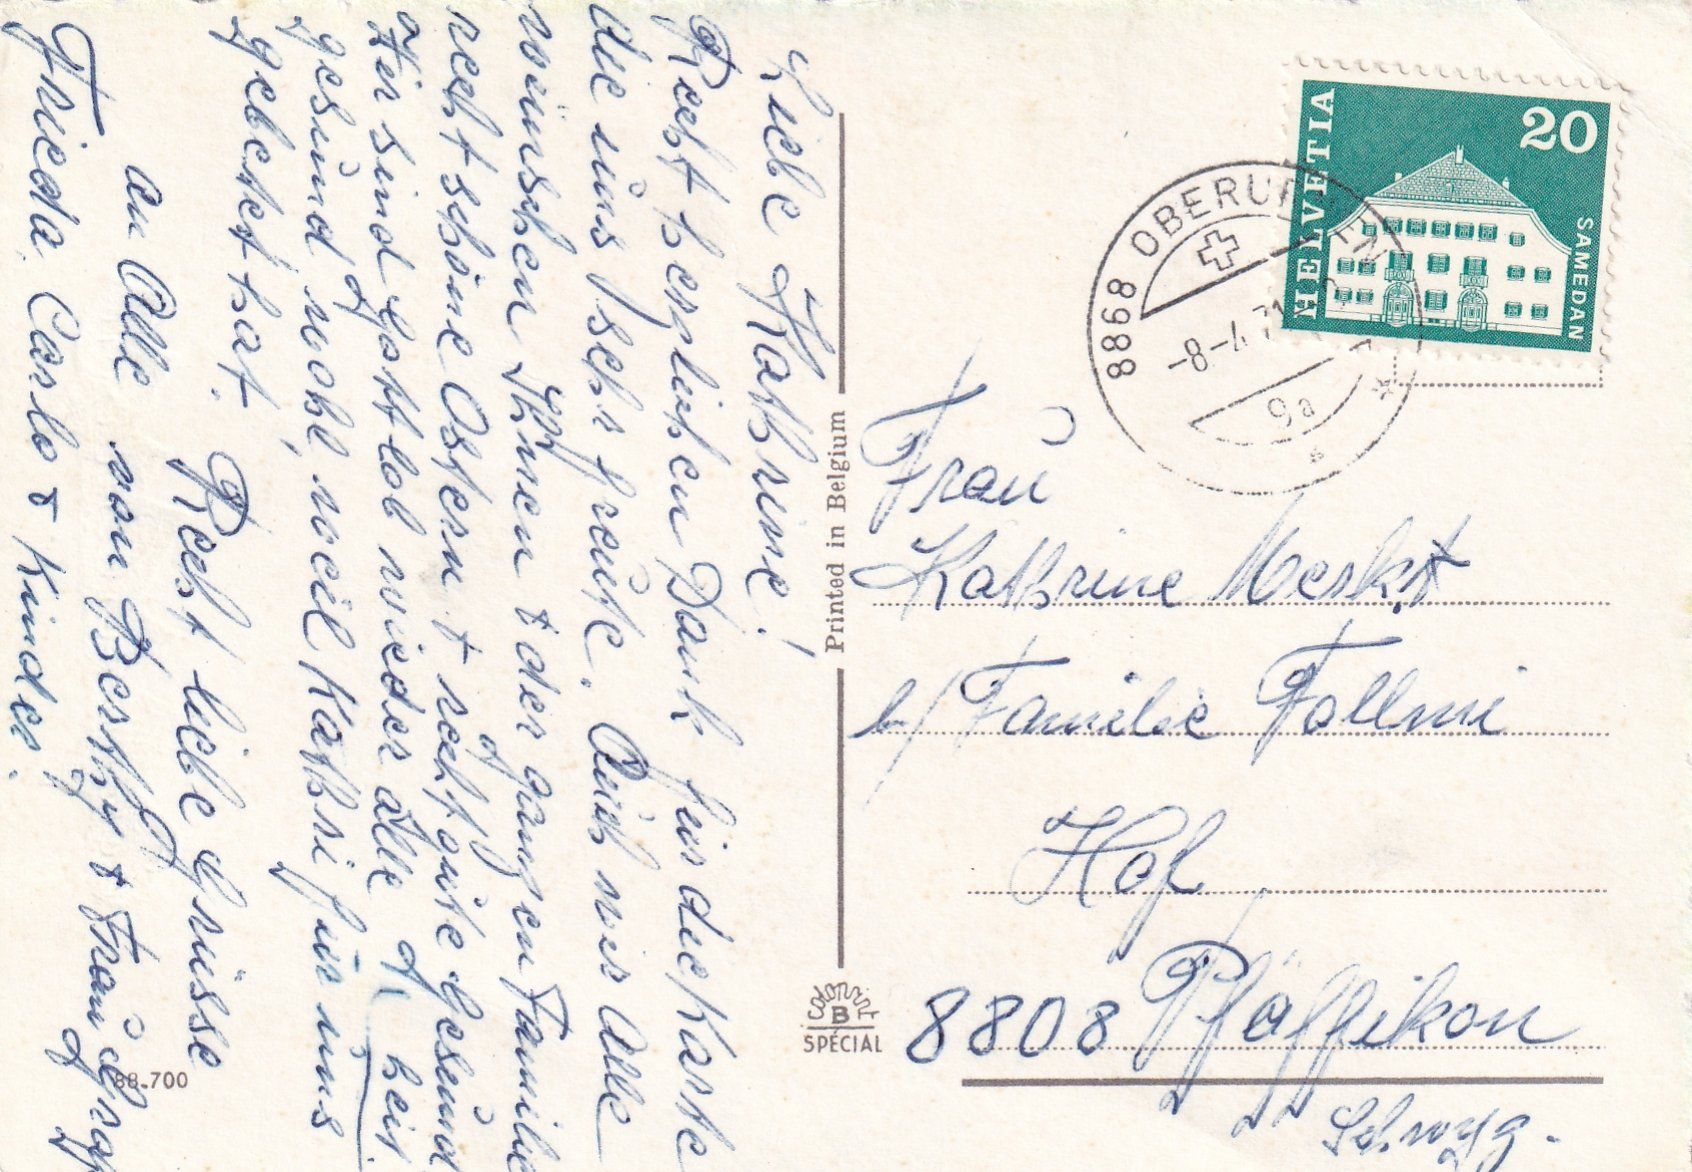 Liebe Kathrine!
Recht herzlichen Dank für die Karte
die uns sehr freute. Auch wir Alle
wünschen Ihnen & der ganzen Familie
recht schöne Ostern & recht gute Gesund
heit.
Wir sind Gottlob wieder alle
gesund, wohl weil Kathri für uns
gebetet hat. Recht liebe Grüsse
an Alle von Berthy & Frau Graf
Frieda, Carlo & Kinder.
88.700
Printed in Belgium
COLORPRINT
B
SPÉCIAL
HELVETIA
20
SAMEDAN
8868 OBERURNEN
-8-4.71
9a
Frau
Kathrine Merkt
b/ Familie Follmi
Hof
8808 Pfäffikon
Schwyz.